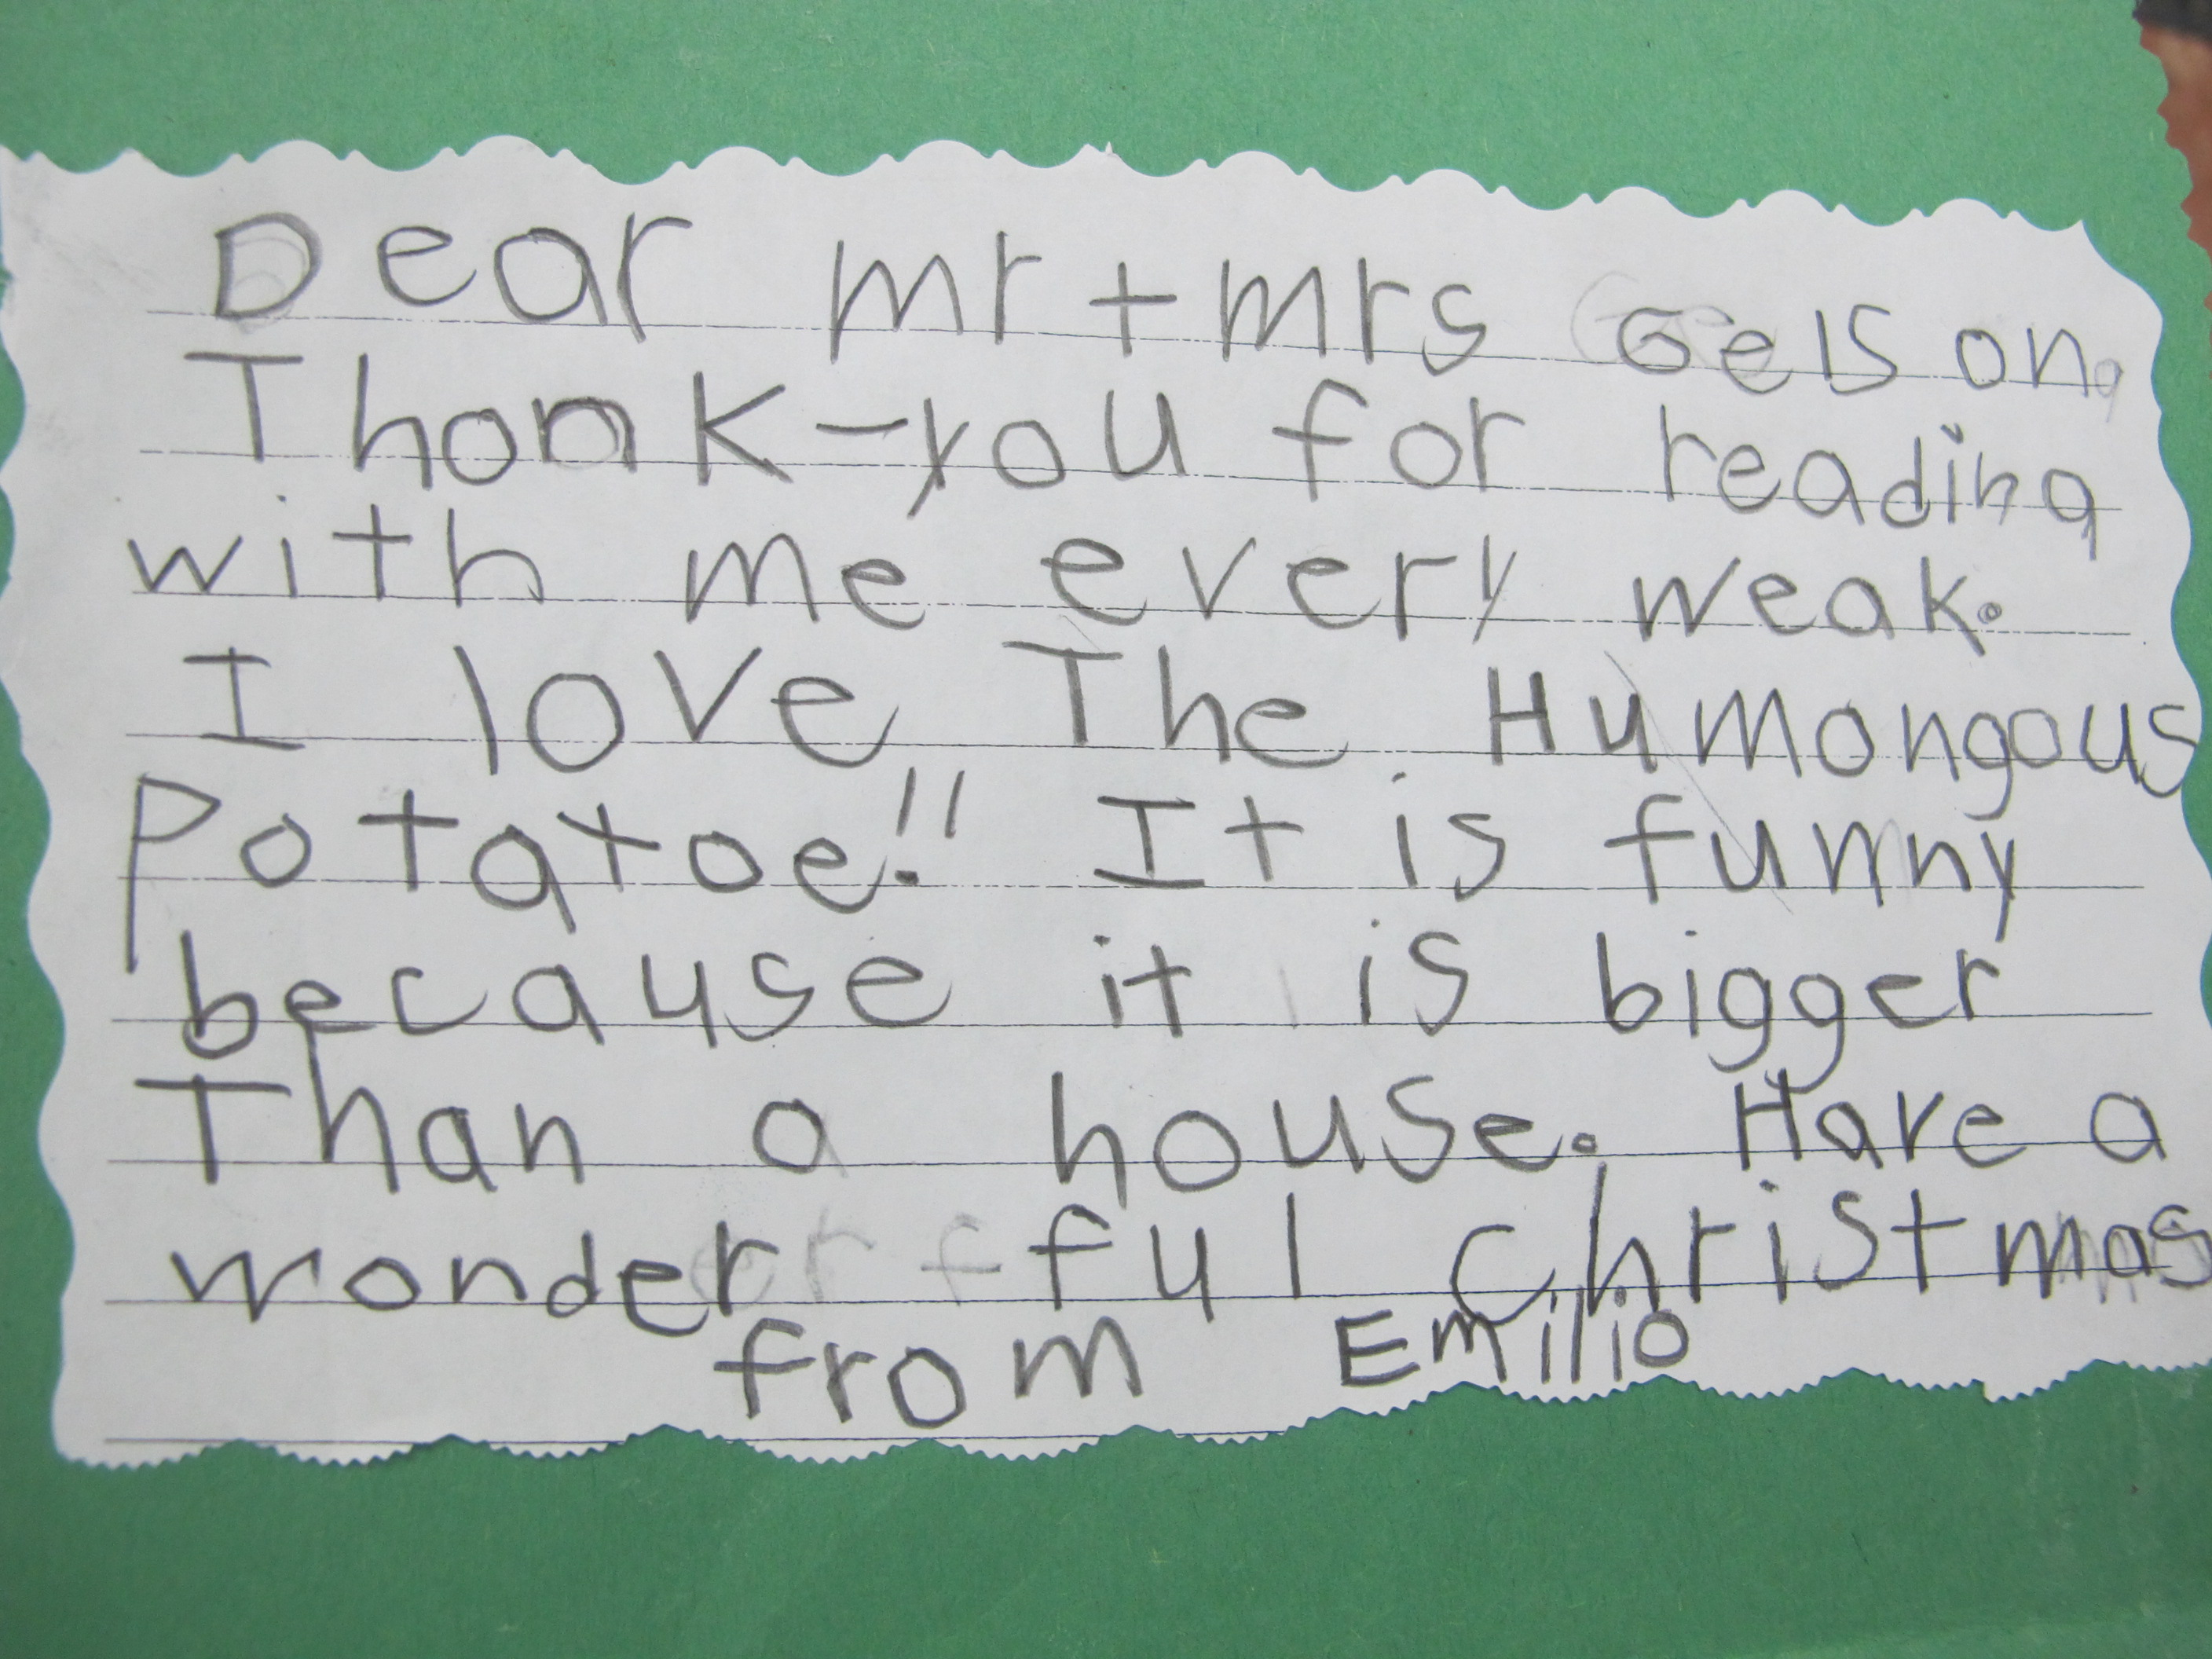 Dear mr + mrs Gelson,
Thank-you for reading
with me every weak.
I love The Humongous
Potatoe!! It is funny
because it is bigger
Than a house. Have a
wonderful christmas
from Emilio